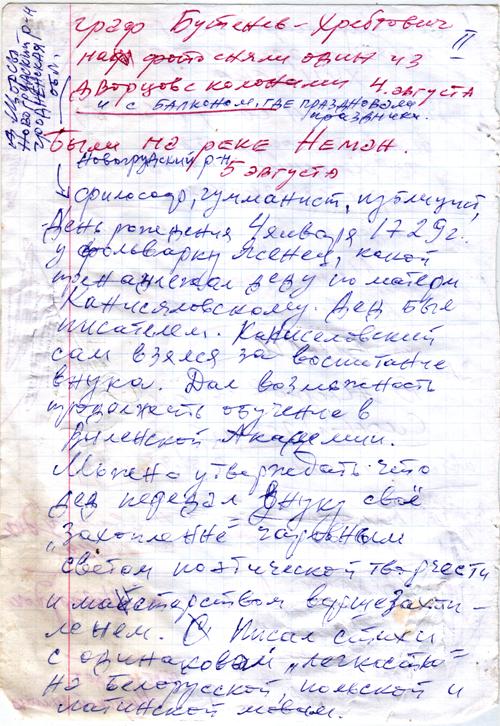 д. Щорсы
Новогрудский р-н
гродненская
обл.
II
графо Бутенев-Хребтович
на фото сняли один из
дворцов с колонами 4 августа
и с балконом, где праздновали
праздники.
Были на реке Неман.
Новогрудский р-н
5 августа
философ, гуманист, публицист,
День рождения 4 января 1729 г.
у фольварку Ясенец, какой
принадлежал деду по матери
Канисяловскому. Дед был
писателем. Каниселовский
сам взялся за воспитание
внука. Дал возможность
продолжить обучение в
Виленской Академии.
Можно утверждать что
дед передал внуку своё
"захопленне" чаровным
светом поэтической творчести
и майстарством
ленем. Писал стихи
с одинаковой "легкостью"
на белорусской, польской и
латинской мовам.